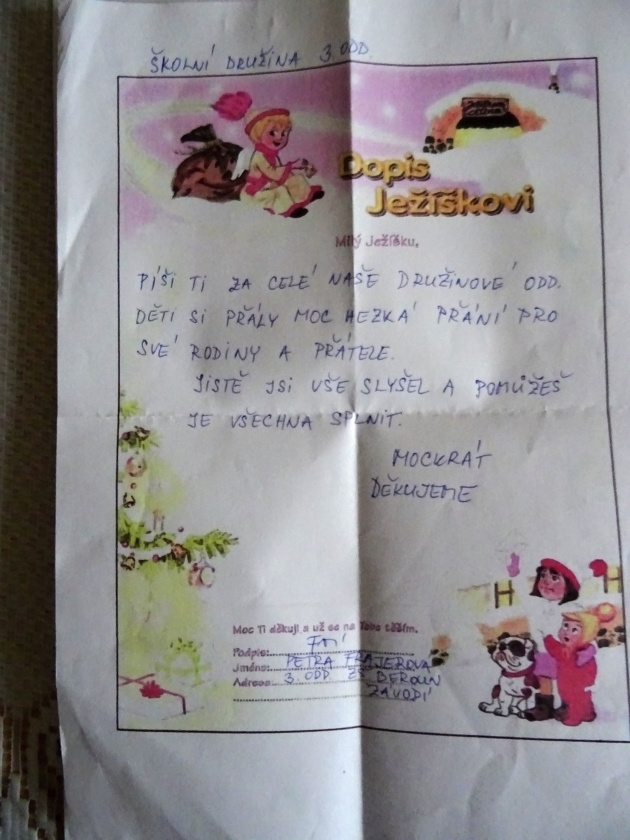 ŠKOLNÍ DRUŽINA 3. ODD.
Dopis
Ježíškovi
Milý Ježíšku,
PÍŠI TI ZA CELÉ NAŠE DRUŽINOVÉ ODD.
DĚTI SI PŘÁLY MOC HEZKÁ PŘÁNÍ PRO
SVÉ RODINY A PŘÁTELE.
JISTĚ JSI VŠE SLYŠEL A POMŮŽEŠ
JE VŠECHNA SPLNIT.
MOCKRÁT
DĚKUJEME
Moc Ti děkuji a už se na Tebe těším.
Podpis:
Jméno: PETRA FRAJEROVÁ
Adresa: 3. ODD ZŠ BEROUN
ZÁVODÍ